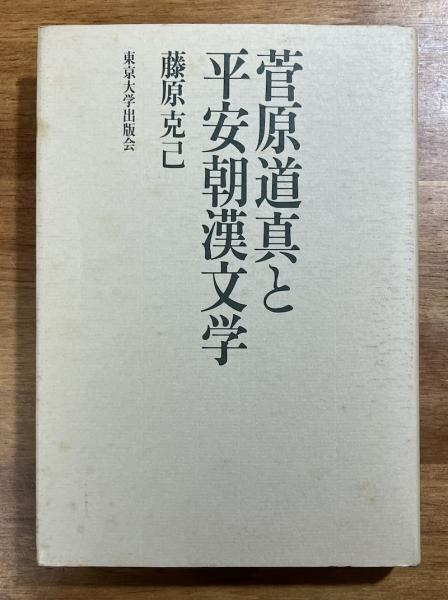 菅原道真と
平安朝漢文学
藤原克己
東京大学出版会